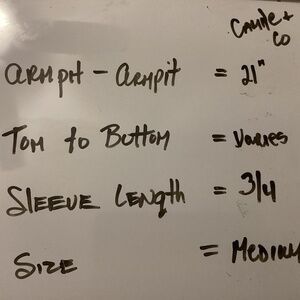 Camile +
Co
Armpit - Armpit = 21"
Tom to Bottom = Varies
Sleeve Length = 3/4
Size = Medium